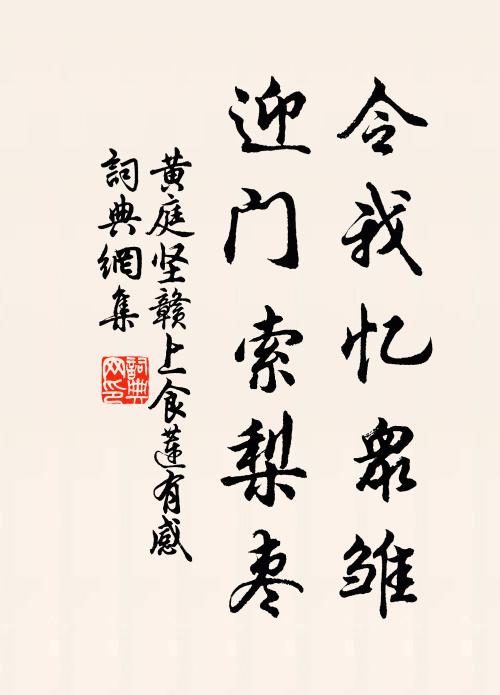 令我忆眾雏
迎门索梨枣
黄庭坚赣上食莲有感
詞典網集
詞典网印